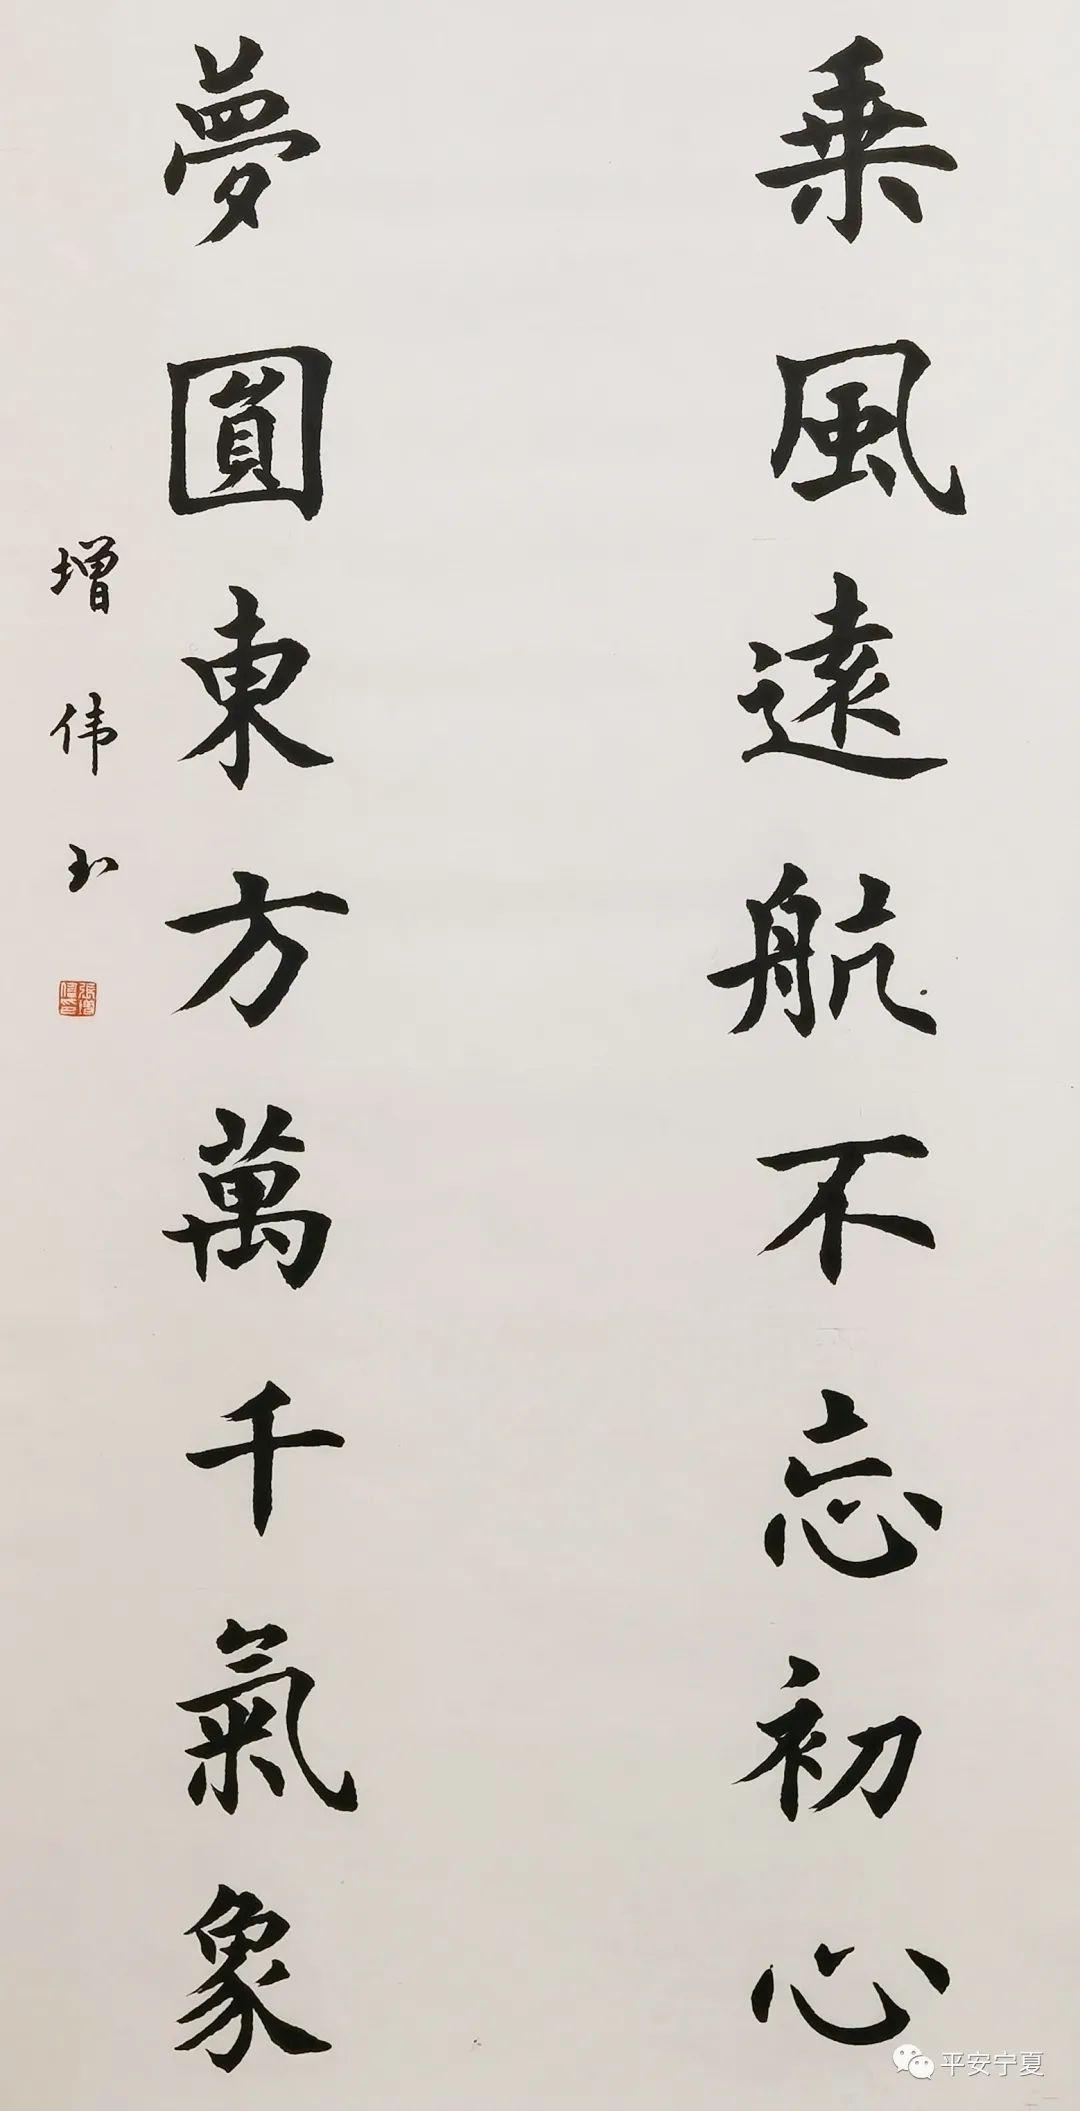 乗風遠航不忘初心
夢圓東方萬千氣象
增伟书
張增偉印
平安宁夏